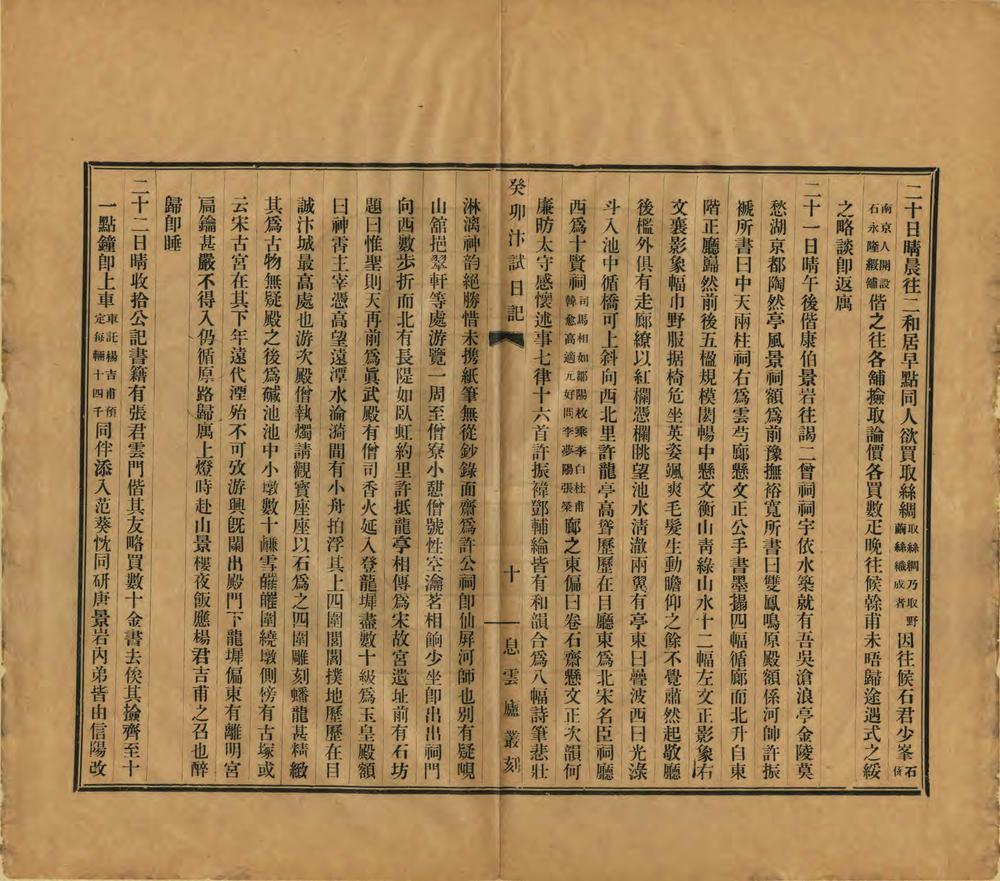 二十日晴晨往二和居早點同人欲買取絲綢取絲綢乃取野繭絲織成者因往候石君少峯石儕
南京人開設石永隆緞舖偕之往各舖撿取論價各買數疋晚往候幹甫未晤歸途遇式之綏
之略談卽返寓
二十一日晴午後偕康伯景岩往謁二曾祠祠宇依水築就有吾吳滄浪亭金陵莫
愁湖京都陶然亭風景祠額爲前豫撫裕寬所書曰雙鳳鳴原殿額係河帥許振
禠所書曰中天兩柱祠右爲雲芍廊懸文正公手書墨搨四幅循廊而北升自東
階正廳巋然前後五楹規模閎暢中懸文衡山靑綠山水十二幅左文正影象右
文襄影象幅巾野服据椅危坐英姿颯爽毛髮生動瞻仰之餘不覺肅然起敬廳
後檻外俱有走廊繚以紅欄憑欄眺望池水淸澈兩翼有亭東曰疊波西曰光淥
斗入池中循橋可上斜向西北里許龍亭高聳歷歷在目廳東爲北宋名臣祠廳
西爲十賢祠司馬相如鄒陽枚乘李白杜甫韓愈高適元好問李夢陽張榮廊之東偏曰卷石齋懸文正次韻何
廉昉太守感懷述事七律十六首許振褘鄧輔綸皆有和韻合爲八幅詩筆悲壯
癸卯汴試日記
十
息雲廬叢刻
淋漓神韵絕勝惜未携紙筆無從鈔錄面齋爲許公祠卽仙屏河帥也別有疑晛
山舘挹翠軒等處游覽一周至僧寮小憩僧號性空瀹茗相餉少坐卽出出祠門
向西數步折而北有長隄如臥虹約里許抵龍亭相傳爲宋故宮遺址前有石坊
題曰惟聖則天再前爲眞武殿有僧司香火延入登龍墀盡數十級爲玉皇殿額
曰神霄主宰憑高望遠潭水淪漪間有小舟拍浮其上四圍閭閻撲地歷歷在目
誠汴城最高處也游次殿僧執燭請觀寳座座以石爲之四圍雕刻蟠龍甚精緻
其爲古物無疑殿之後爲碱池池中小墩數十鹻雪皠皠圍繞墩側傍有古塚或
云宋古宮在其下年遠代湮殆不可攷游興旣闌出殿門下龍墀偏東有離明宮
扃鑰甚嚴不得入仍循原路歸寓上燈時赴山景樓夜飯應楊君吉甫之召也醉
歸卽睡
二十二日晴收拾公記書籍有張君雲門偕其友略買數十金書去俟其撿齊至十
一點鐘卽上車車託楊吉甫預定每輛十四千同伴添入范葵忱同研唐景岩內弟皆由信陽改